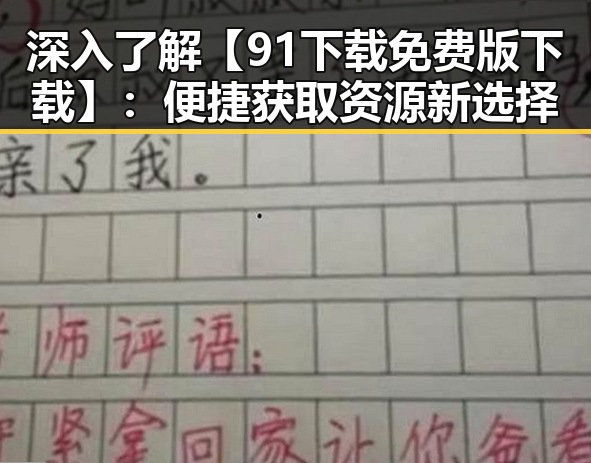 深入了解【91下载免费版下
载】：便捷获取资源新选择
亲了我。
师评语：
紧拿回家让你爸看